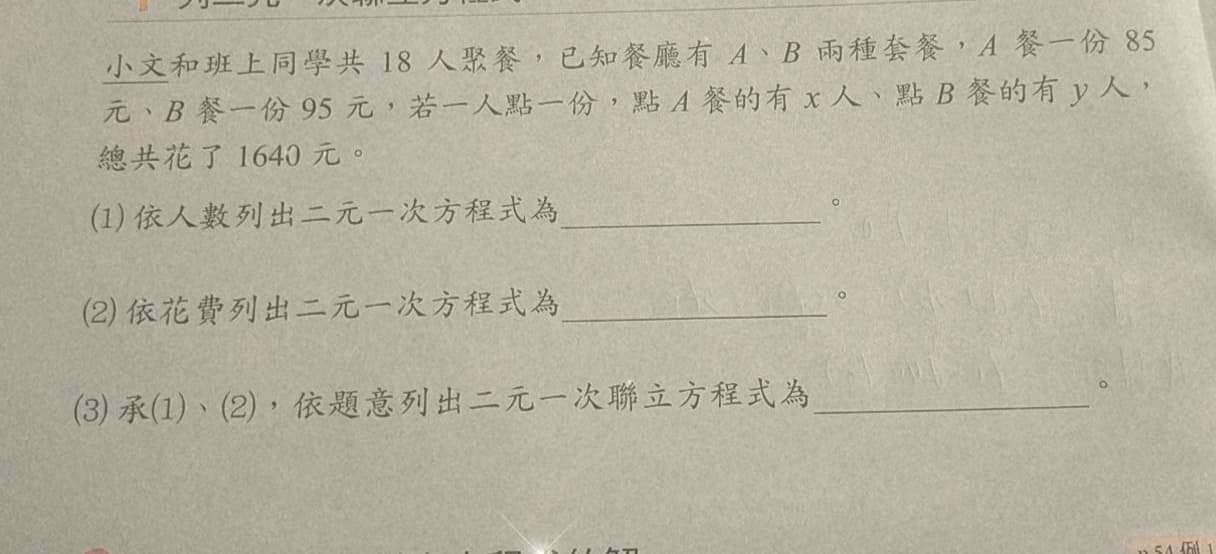 小文和班上同學共 18 人聚餐，已知餐廳有 A、B 兩種套餐，A 餐一份 85
元、B 餐一份 95 元，若一人點一份，點 A 餐的有 x 人、點 B 餐的有 y 人，
總共花了 1640 元。
(1) 依人數列出二元一次方程式為＿＿＿＿＿＿＿＿。
(2) 依花費列出二元一次方程式為＿＿＿＿＿＿＿＿。
(3) 承(1)、(2)，依題意列出二元一次聯立方程式為＿＿＿＿＿＿＿＿。